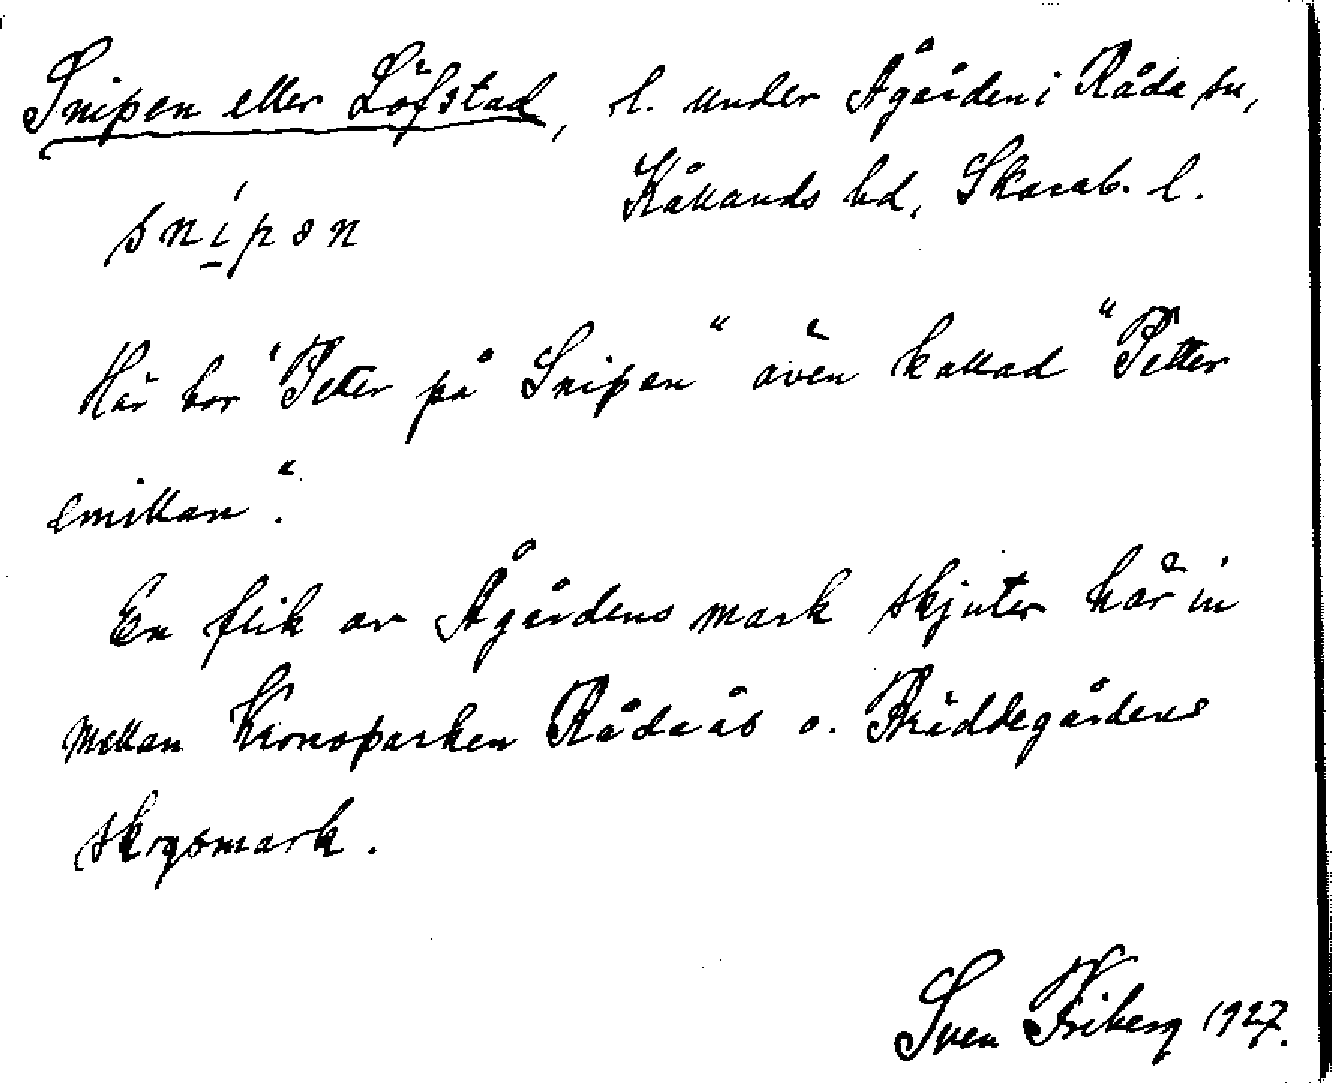 Snipen eller Löfstad, l. under Ågården i Råda sn,
Kållands hd, Skarab. l.
snipən
Här bor "Petter på Snipen" även kallad "Petter
emillan".
En flik av Ågårdens mark skjuter här in
mellan Kronoparken Rådaås o. Priddegårdens
skogsmark.
Sven Friberg 1927.